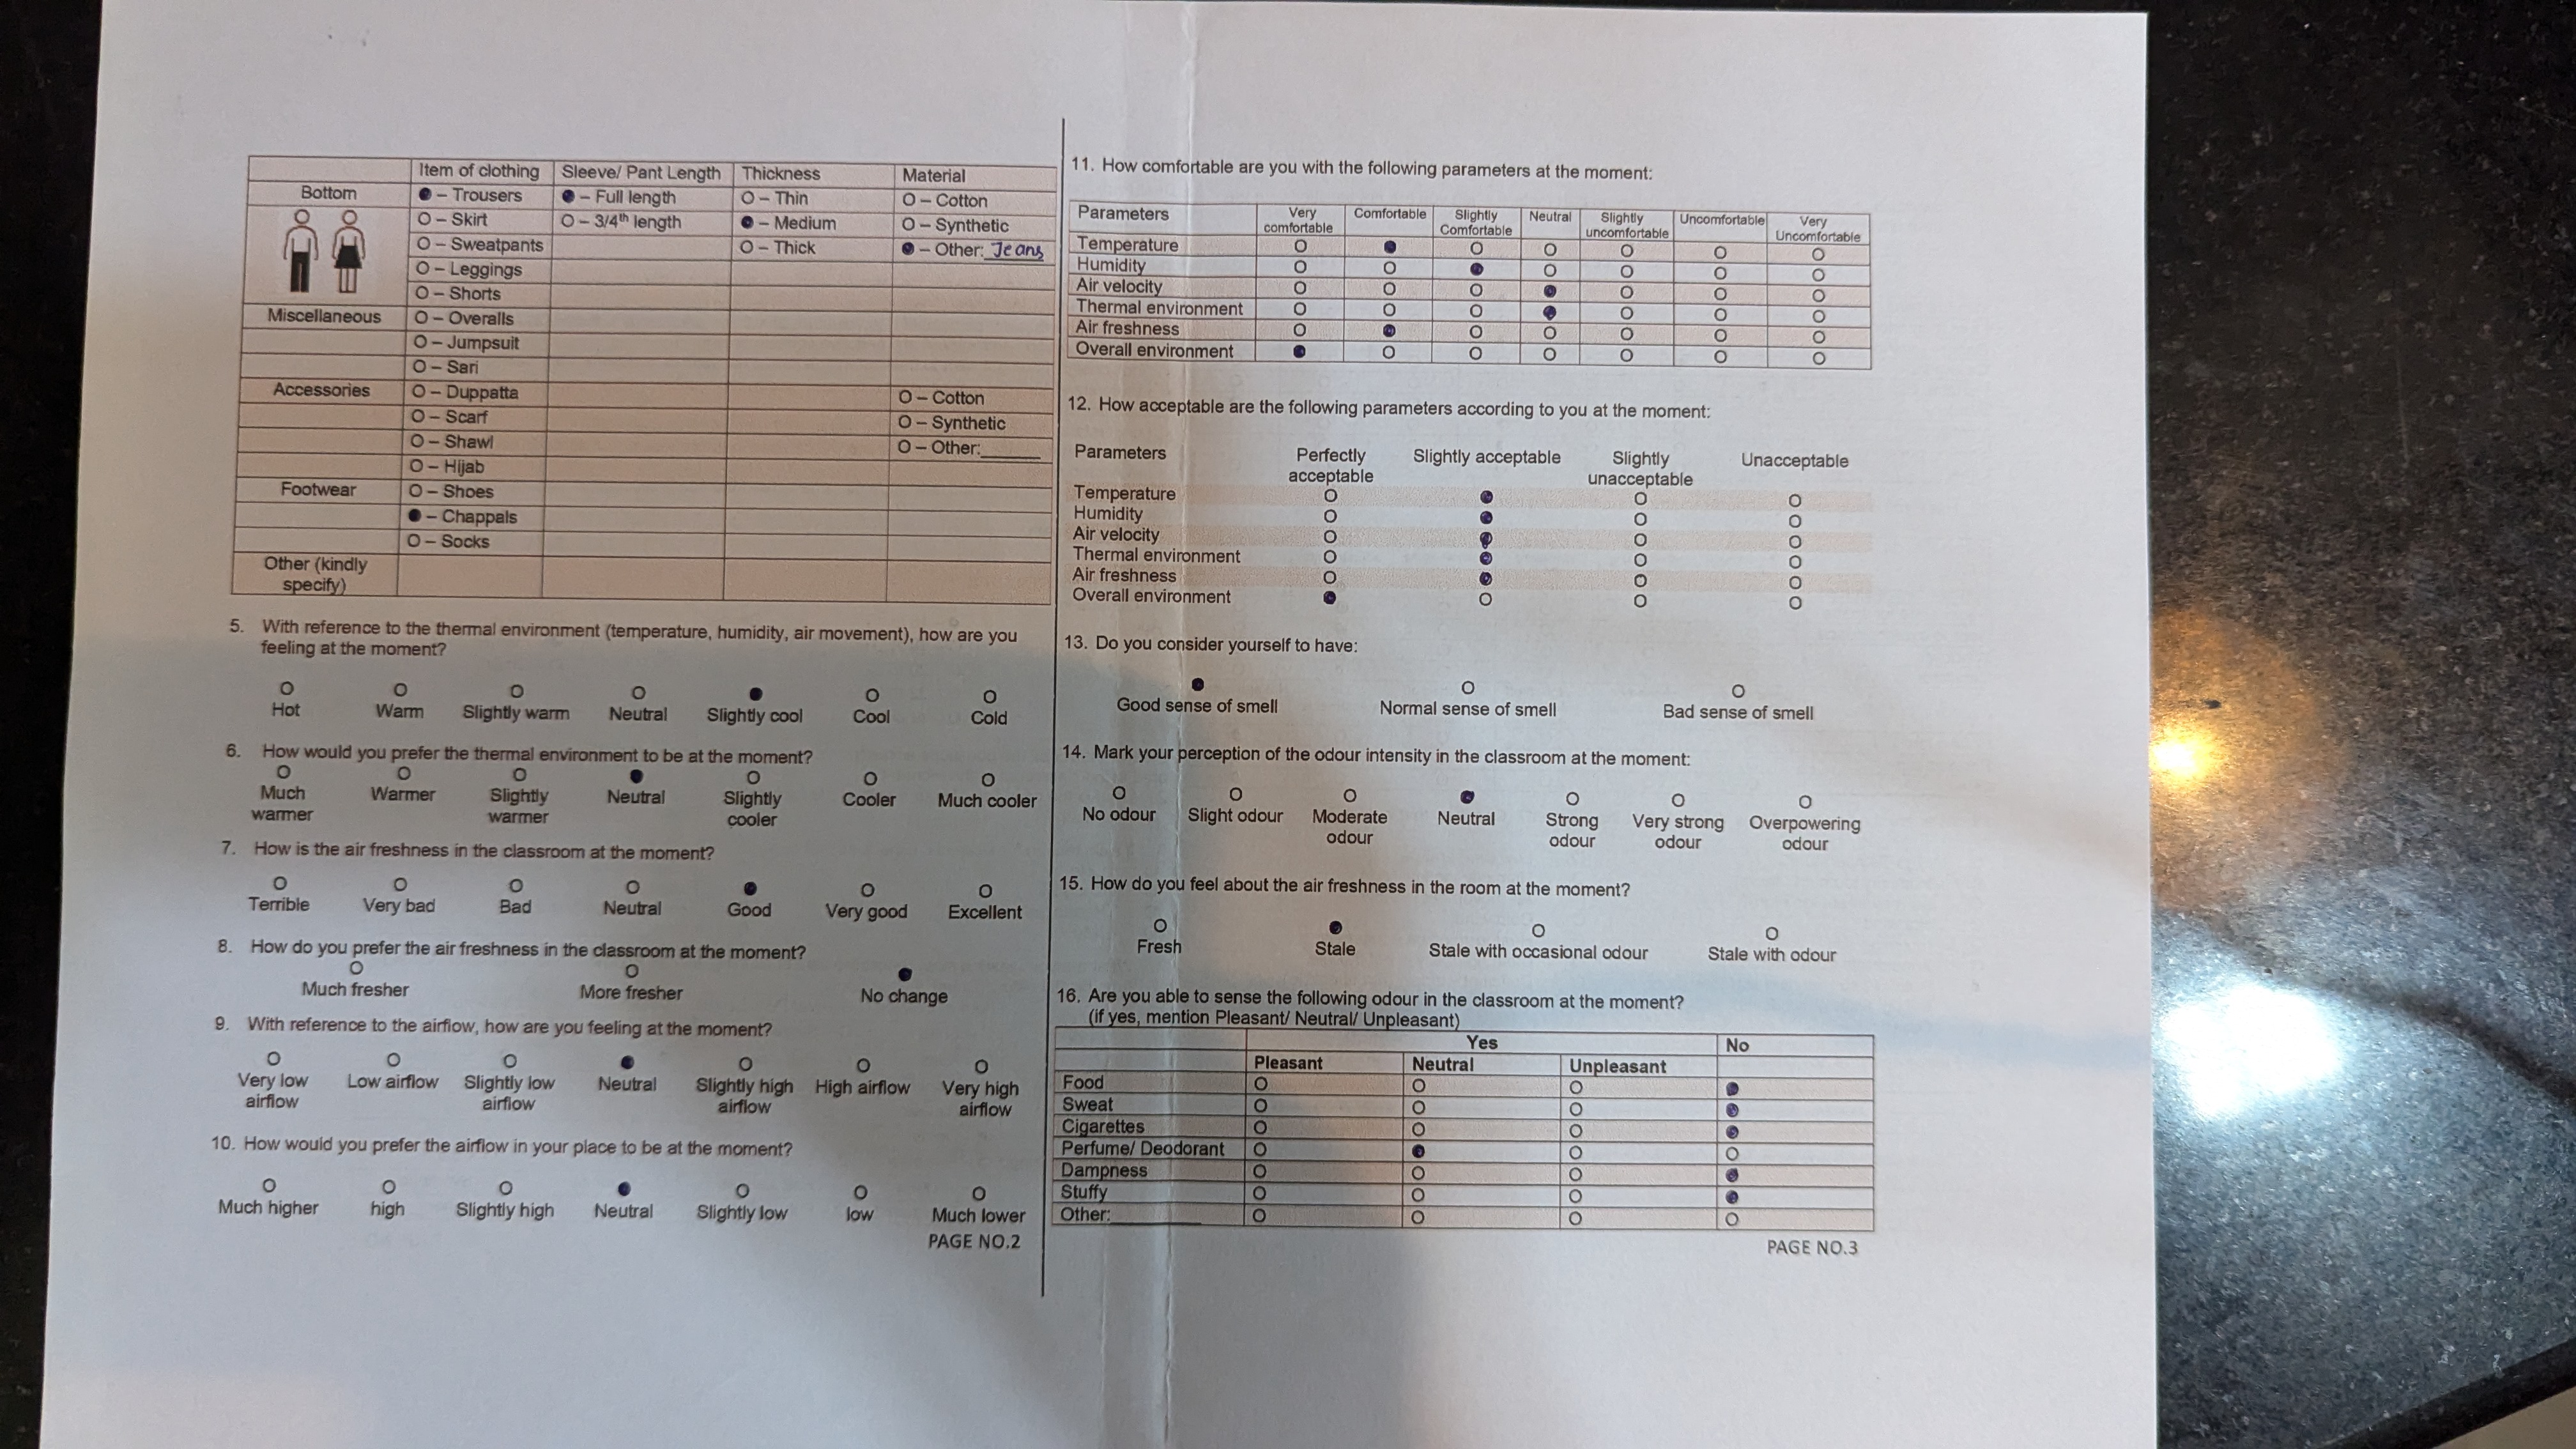 Item of clothing Sleeve/ Pant Length Thickness Material
Bottom ● – Trousers ● – Full length O – Thin O – Cotton
O – Skirt O – 3/4th length ● – Medium O – Synthetic
O – Sweatpants O – Thick ● – Other: Jeans
O – Leggings
O – Shorts
Miscellaneous O – Overalls
O – Jumpsuit
O – Sari
Accessories O – Duppatta O – Cotton
O – Scarf O – Synthetic
O – Shawl O – Other:______
O – Hijab
Footwear O – Shoes
● – Chappals
O – Socks
Other (kindly
specify)
5. With reference to the thermal environment (temperature, humidity, air movement), how are you
feeling at the moment?
O O O O ● O O
Hot Warm Slightly warm Neutral Slightly cool Cool Cold
6. How would you prefer the thermal environment to be at the moment?
O O O ● O O O
Much Warmer Slightly Neutral Slightly Cooler Much cooler
warmer warmer cooler
7. How is the air freshness in the classroom at the moment?
O O O O ● O O
Terrible Very bad Bad Neutral Good Very good Excellent
8. How do you prefer the air freshness in the classroom at the moment?
O O ●
Much fresher More fresher No change
9. With reference to the airflow, how are you feeling at the moment?
O O O ● O O O
Very low Low airflow Slightly low Neutral Slightly high High airflow Very high
airflow airflow airflow airflow
10. How would you prefer the airflow in your place to be at the moment?
O O O ● O O O
Much higher high Slightly high Neutral Slightly low low Much lower
PAGE NO.2
11. How comfortable are you with the following parameters at the moment:
Parameters Very Comfortable Slightly Neutral Slightly Uncomfortable Very
comfortable Comfortable uncomfortable Uncomfortable
Temperature O ● O O O O O
Humidity O O ● O O O O
Air velocity O O O ● O O O
Thermal environment O O O ● O O O
Air freshness O ● O O O O O
Overall environment ● O O O O O O
12. How acceptable are the following parameters according to you at the moment:
Parameters Perfectly Slightly acceptable Slightly Unacceptable
acceptable unacceptable
Temperature O ● O O
Humidity O ● O O
Air velocity O ● O O
Thermal environment O ● O O
Air freshness O ● O O
Overall environment ● O O O
13. Do you consider yourself to have:
● O O
Good sense of smell Normal sense of smell Bad sense of smell
14. Mark your perception of the odour intensity in the classroom at the moment:
O O O ● O O O
No odour Slight odour Moderate Neutral Strong Very strong Overpowering
odour odour odour odour
15. How do you feel about the air freshness in the room at the moment?
O ● O O
Fresh Stale Stale with occasional odour Stale with odour
16. Are you able to sense the following odour in the classroom at the moment?
(if yes, mention Pleasant/ Neutral/ Unpleasant)
Yes No
Pleasant Neutral Unpleasant
Food O O O ●
Sweat O O O ●
Cigarettes O O O ●
Perfume/ Deodorant O ● O O
Dampness O O O ●
Stuffy O O O ●
Other:________ O O O O
PAGE NO.3